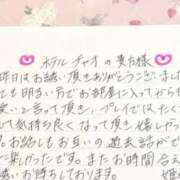 ホテルチャオの貴方様
昨日はお誘い頂きありがとうございまし
て明るい方でお部屋に入ってから
って頂き、プレイではたく
て気持ち良くなって頂き嬉しかっ
お話しもお互いの過去話がで
楽しかったです。またお時間合え
お誘いお待ちしております。